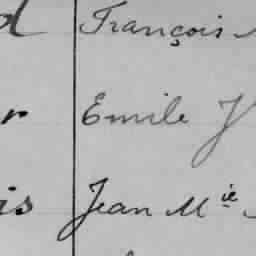 d François
r Emile
is Jean Mie